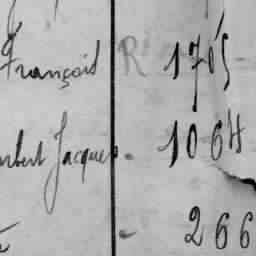 François R 1705
Jacques. 1064
- 266